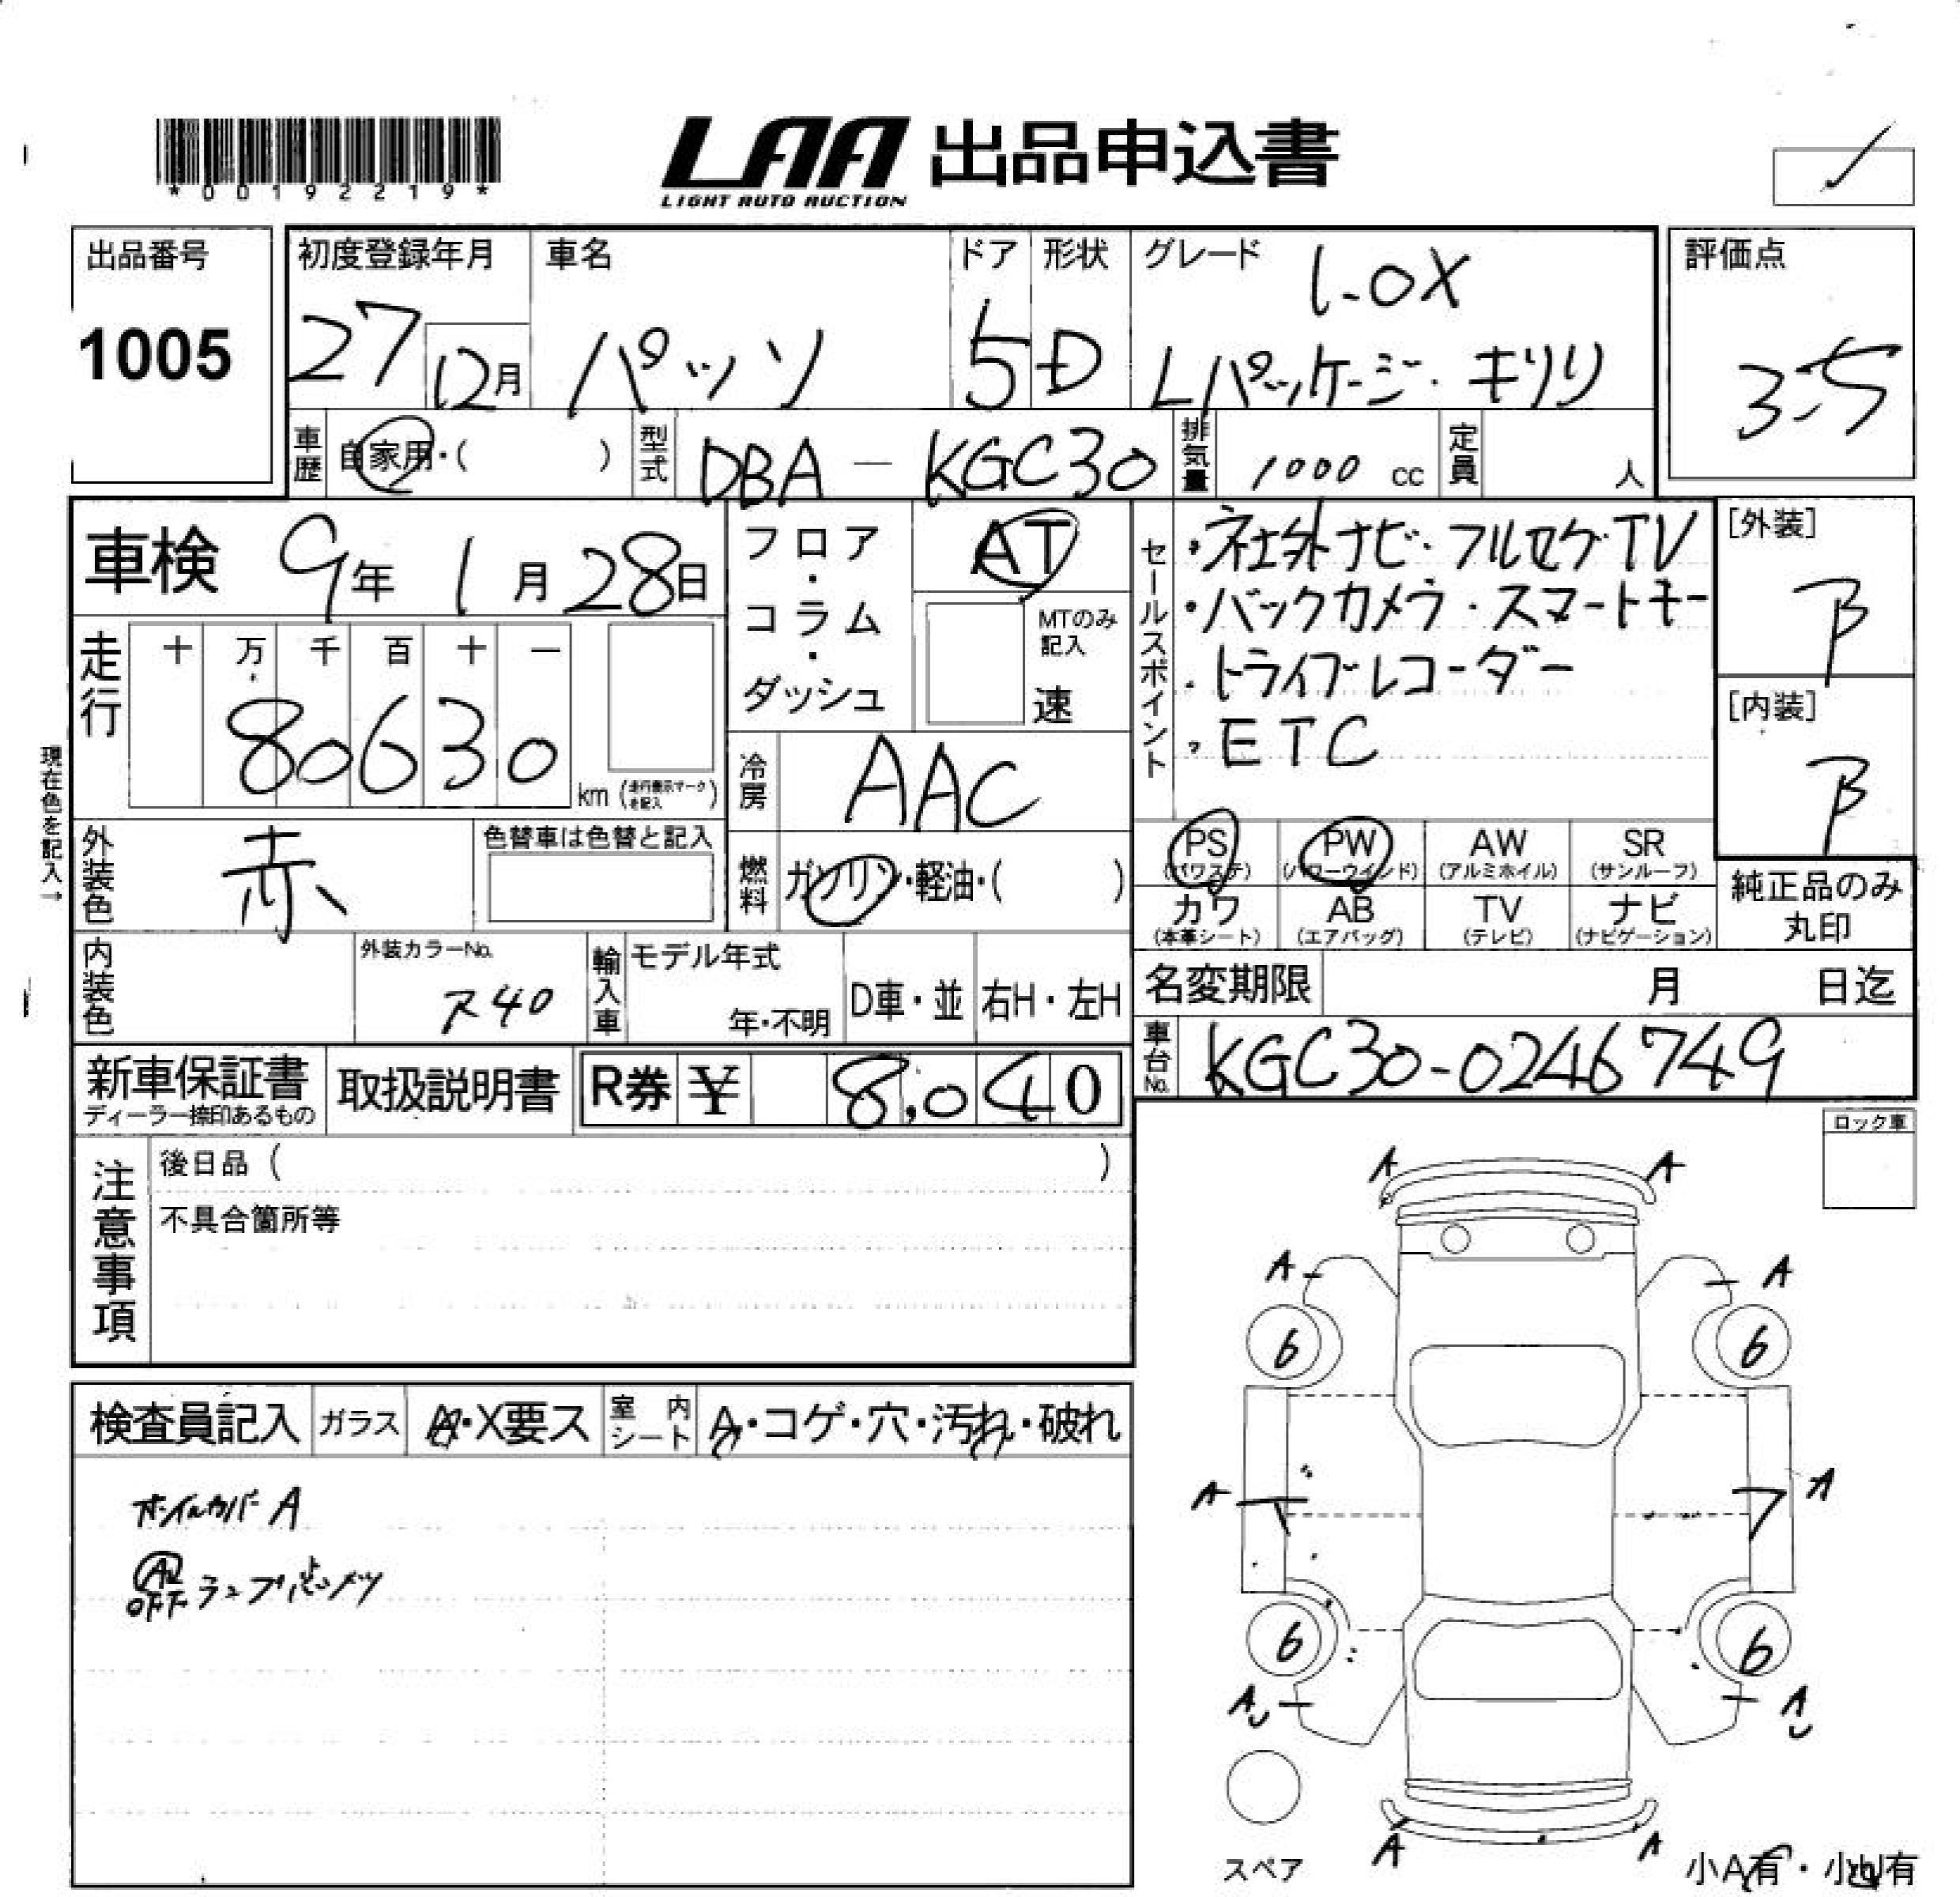 *00192219*
LAA 出品申込書
LIGHT AUTO AUCTION
出品番号
1005
初度登録年月
27 12月
車名
パッソ
ドア
5
形状
D
グレード
1.0X
Lパッケージ・キリリ
評価点
3.5
車歴
自家用・( )
型式
DBA-KGC30
排気量
1000 cc
定員
人
車検 9年 1月 28日
走行
十 万 千 百 十 一
80630
km (走行表示マークを記入)
現在色を記入→
外装色
赤
色替車は色替と記入
フロア・コラム・ダッシュ
AT
MTのみ記入
速
冷房
AAC
燃料
ガソリン・軽油・( )
セールスポイント
・社外ナビ・フルセグTV
・バックカメラ・スマートキー
・ドライブレコーダー
・ETC
[外装]
B
[内装]
B
PS (パワステ)
PW (パワーウインド)
AW (アルミホイル)
SR (サンルーフ)
カワ (本革シート)
AB (エアバッグ)
TV (テレビ)
ナビ (ナビゲーション)
純正品のみ丸印
内装色
外装カラーNo.
R40
輸入車
モデル年式
年・不明
D車・並
右H・左H
名変期限
月 日迄
車台No.
KGC30-0246749
新車保証書
ディーラー捺印あるもの
取扱説明書
R券 ¥ 8,040
注意事項
後日品 ( )
不具合箇所等
ロック車
検査員記入
ガラス
A・X要ス
室内シート
A・コゲ・穴・汚れ・破れ
ホイルカバーA
OFFランプ点メツ
A A
A A
6 6
A A
6 6
A A
A A
スペア
小A有・小U有